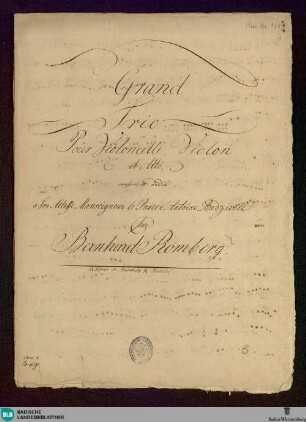 Grand
Trio
Pour Violoncelli Violon
et Alto
composé et dedié
a Son Altesse Monseigneur le Prince Antoine Radziwill
par
Bernhard Romberg
BLB
BADISCHE
LANDESBIBLIOTHEK
Baden-Württemberg